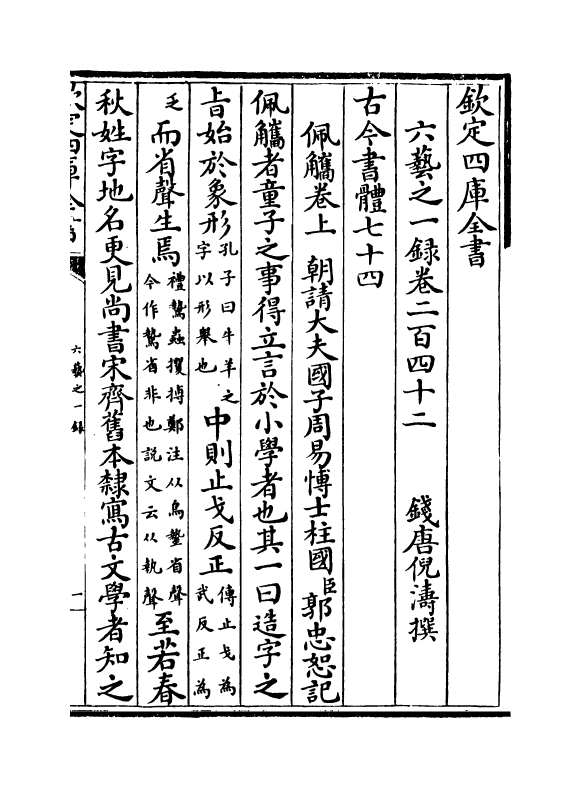 欽定四庫全書
六藝之一録卷二百四十二　　錢唐倪濤撰
古今書體七十四
佩觿卷上　朝請大夫國子周易博士柱國臣郭忠恕記
佩觿者童子之事得立言於小學者也其一曰造字之
旨始於象形孔子曰牛羊之字以形舉也中則止戈反正傳止戈為武反正為
乏而省聲生焉禮鷙蟲攫搏鄭注从鳥蟄省聲今作鷙省非也説文云从執聲至若春
秋姓字地名更見尚書宋齊舊本隸寫古文學者知之
六藝之一録